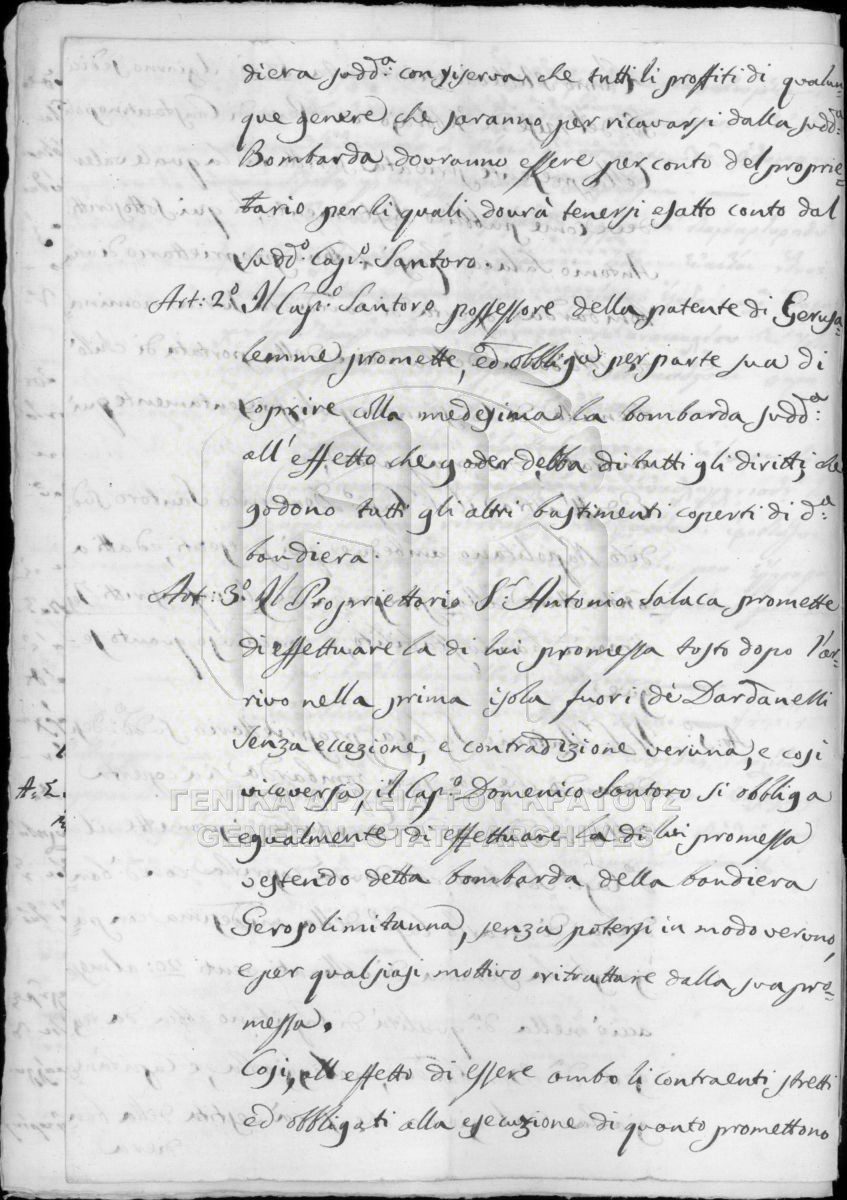 diera sudd.ª con riserva che tutti li proffiti di qualun=
que genere che saranno per ricavarsi dalla sudd.ª
Bombarda dovranno essere per conto del proprie=
tario per li quali dovrà tenersi esatto conto dal
sudd.º Cap.º Santoro.
Art: 2.º Il Cap.º Santoro possessore della patente di Gerusa=
lemme promette, ed obbliga per parte sua di
coprire colla medesima la bombarda sudd.ª
all'effetto che goder debba di tutti gli diritti che
godono tutti gli altri bastimenti coperti di d.ª
bandiera
Art: 3.º Il Proprietario S.r Antonio Salaca promette
di effettuare la di lui promessa tosto dopo l'ar=
rivo nella prima isola fuori de Dardanelli
senza eccezione, e contradizione veruna, e così
viceversa, il Cap.º Domenico Santoro si obbliga
A. Σ.
egualmente di effettuare la di lui promessa
vestendo detta bombarda della bandiera
Gerosolimitanna, senza potersi in modo veruno,
e per qualsiasi mottivo ritrattare dalla sua pro=
messa.
Così, all effetto di essere ambo li contraenti stretti
ed obbligati alla esecuzione di quanto promettono
ΓΕΝΙΚΑ ΑΡΧΕΙΑ ΤΟΥ ΚΡΑΤΟΥΣ
GENERAL STATE ARCHIVES